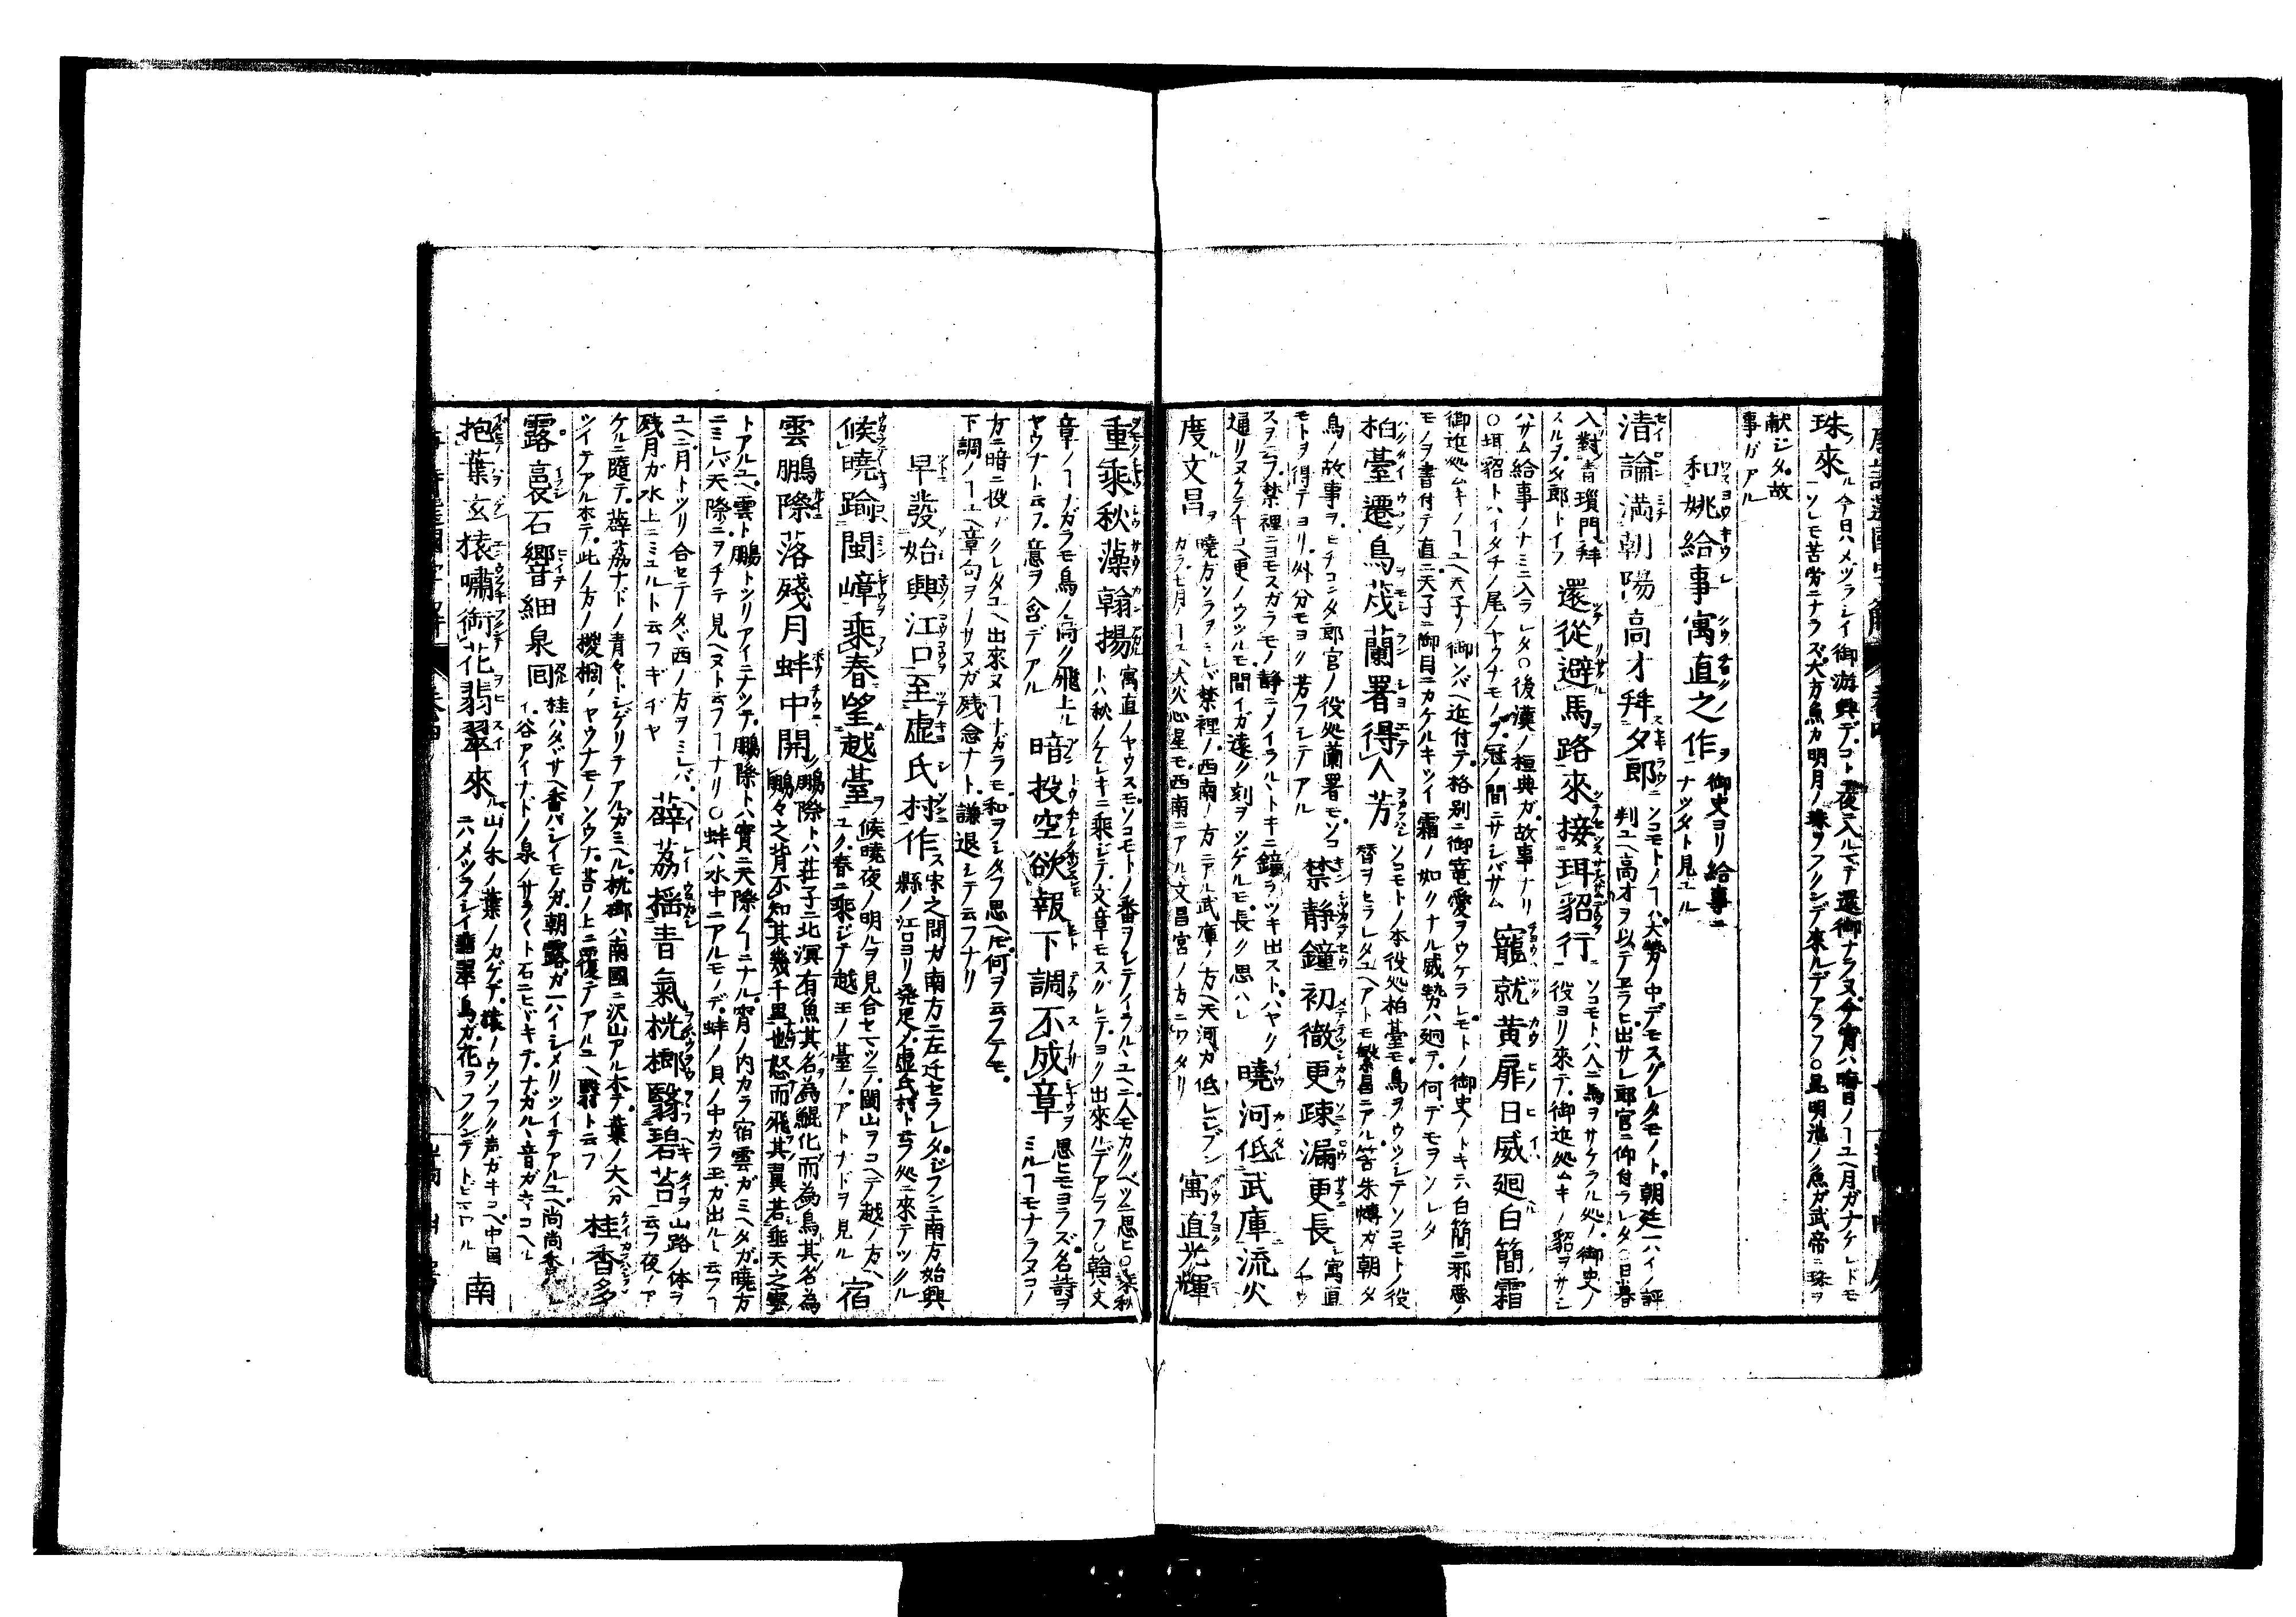 珠來 今日ハメヅラシイ御游興デコト夜入ルマデ還御ナラヌ今宵ハ晦日ノーユヘ月ガナケレドモ
ソレモ苦労ニナラズ大方魚カ明月ノ珠ヲフクンデ來ルデアラフ○昆明池ノ魚ガ武帝ニ珠ヲ
献シタ故
事ガアル
和姚給事寓直之作 御史ヨリ給事ニ
ナツタト見エル
清論満朝陽高才拜夕郎 ソコモトノーハ大勢ノ中デモスグレタモノト朝廷一ハイノ評
判ユヘ高才ヲ以テヱラヒ出サレ郎官ニ仰付ラレタ○日暮
入對青瑣門拜
スルヲ夕郎トイフ 還從避馬路來接珥貂行 ソコモトハ人ニ馬ヲサケラルル処ノ御史ノ
役ヨリ來テ御近処ムキノ貂ヲサシ
ハサム給事ノナミニ入ラレタ○後漢ノ桓典ガ故事ナリ
○珥貂トハイタチノ尾ノヤウナモノヲ冠ノ間ニサシバサム 寵就黄扉日威廻白簡霜
御近処ムキノーユヘ天子ノ御ソバヘ近付テ格別ニ御寵愛ヲウケラレモトノ御史ノトキニ白簡ニ邪悪ノ
モノヲ書付テ直ニ天子ニ御目ニカケルキツイ霜ノ如クナル威勢ハ廻テ何デモヲソレタ
柏臺遷鳥茂蘭署得人芳 ソコモトノ本役処柏臺モ鳥ヲウツシテソコモトノ役
替ヲセラレタユヘアトモ繁昌ニアル筈朱博ガ朝夕
鳥ノ故事ヲモチコンダ郎官ノ役処蘭署モソコ
モトヲ得テヨリ外分モヨク芳フシテアル 禁静鐘初徹更疎漏更長 寓直
ノヤウ
スヲ云フ禁裡ニヨモスガラモノ静ニメイラルルトキニ鐘ヲツキ出ストハヤク
通リヌケテキコヘ更ノウツルモ間イガ遠ク刻ヲツゲルモ長ク思ハレ 曉河低武庫流火
度文昌 曉方ソラヲミレバ禁裡ノ西南ノ方ニアル武庫ノ方ヘ天河ガ低レジブン
カラモ七月ノーユヘ大火心星モ西南ニアル文昌宮ノ方ニワタリ 寓直光輝
重乘秋藻翰揚 寓直ノヤウスモソコモトノ番ヲシテイラルルユヘニ人モカクベツニ思ヒ○乘秋
トハ秋ノケシキニ乘ジテ文章モスグレテヨク出來ルデアラフ○翰ハ文
章ノーナガラモ鳥ノ高ク飛上ル
ヤウナト云フ意ヲ含デアル 暗投空欲報下調不成章 思ヒモヨラズ名詩ヲ
ミルーモナラヌコノ
方ニ暗ニ投ゲクレタユヘ出來ヌーナガラモ和ヲシタフ思ヘドモ何ヲ云フテモ
下調ノーユヘ章句ヲーサヌガ残念ナト謙退シテ云フナリ
早發始興江口至虚氏村作 宋之問ガ南方ニ左迁セラレタジブンニ南方始興
縣ノ江口ヨリ発足メ虚氏村ト云フ処ニ來テツクル
候曉踰閩嶂乘春望越臺 候曉夜ノ明ルヲ見合セマツテ閩山ヲコヘテ越ノ方ヘ
ユク春ニ乘ジテ越王ノ臺ノアトナドヲ見ル 宿
雲鵬際落殘月蚌中開 鵬際トハ荘子ニ北溟有魚其名為鯤化而為鳥其名為
鵬々之背不知其幾千里也怒而飛其翼若垂天之雲
トアルユヘ雲ト鵬トシリアイニナツテ鵬際トハ實ニ天際ノーニナル宵ノ内カラ宿雲ガミヘタガ曉方
ニミレバ天際ニヲチテ見ヘヌト云フーナリ○蚌ハ水中ニアルモノデ蚌ノ貝ノ中カラ玉ガ出ルト云フー
ユヘニ月トツリ合セテノタトヘ西ノ方ヲミレバ
残月ガ水上ニミユルト云フギヂヤ 薜荔揺青氣桄榔翳碧苔 山路ノ体ヲ
云フ夜ノア
ケルニ隨テ薜荔ナドノ青々トシゲリテアルガミヘル桄榔ハ南國ニ沢山アル木デ葉ノ大分
ツイテアル木デ此ノ方ノ椶櫚ノヤウナモノソウナ苔ノ上ニ覆テアルユヘ翳ト云フ 桂香多
露裛石響細泉囘 桂ハタダサヘ香バシイモノガ朝露ガ一ハイシメリツイテアルユヘ尚尚香シ
谷アイナドノ泉ノサラ〱ト石ニヒビキテナガルル音ガキコヘル
抱葉玄猿嘯銜花翡翠來 山ノ木ノ葉ノカゲデ猿ノウソフク声ガキコヘ中國
ニハメヅラシイ翡翠鳥ガ花ヲフクンデトビキタル 南